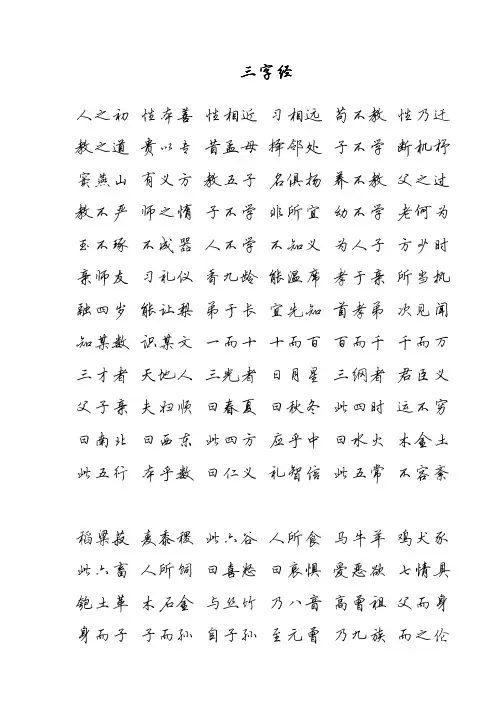 三字经
人之初 性本善 性相近 习相远 苟不教 性乃迁
教之道 贵以专 昔孟母 择邻处 子不学 断机杼
窦燕山 有义方 教五子 名俱扬 养不教 父之过
教不严 师之惰 子不学 非所宜 幼不学 老何为
玉不琢 不成器 人不学 不知义 为人子 方少时
亲师友 习礼仪 香九龄 能温席 孝于亲 所当执
融四岁 能让梨 弟于长 宜先知 首孝弟 次见闻
知某数 识某文 一而十 十而百 百而千 千而万
三才者 天地人 三光者 日月星 三纲者 君臣义
父子亲 夫妇顺 曰春夏 曰秋冬 此四时 运不穷
曰南北 曰西东 此四方 应乎中 曰水火 木金土
此五行 本乎数 曰仁义 礼智信 此五常 不容紊
稻粱菽 麦黍稷 此六谷 人所食 马牛羊 鸡犬豕
此六畜 人所饲 曰喜怒 曰哀惧 爱恶欲 七情具
匏土革 木石金 与丝竹 乃八音 高曾祖 父而身
身而子 子而孙 自子孙 至元曾 乃九族 而之伦